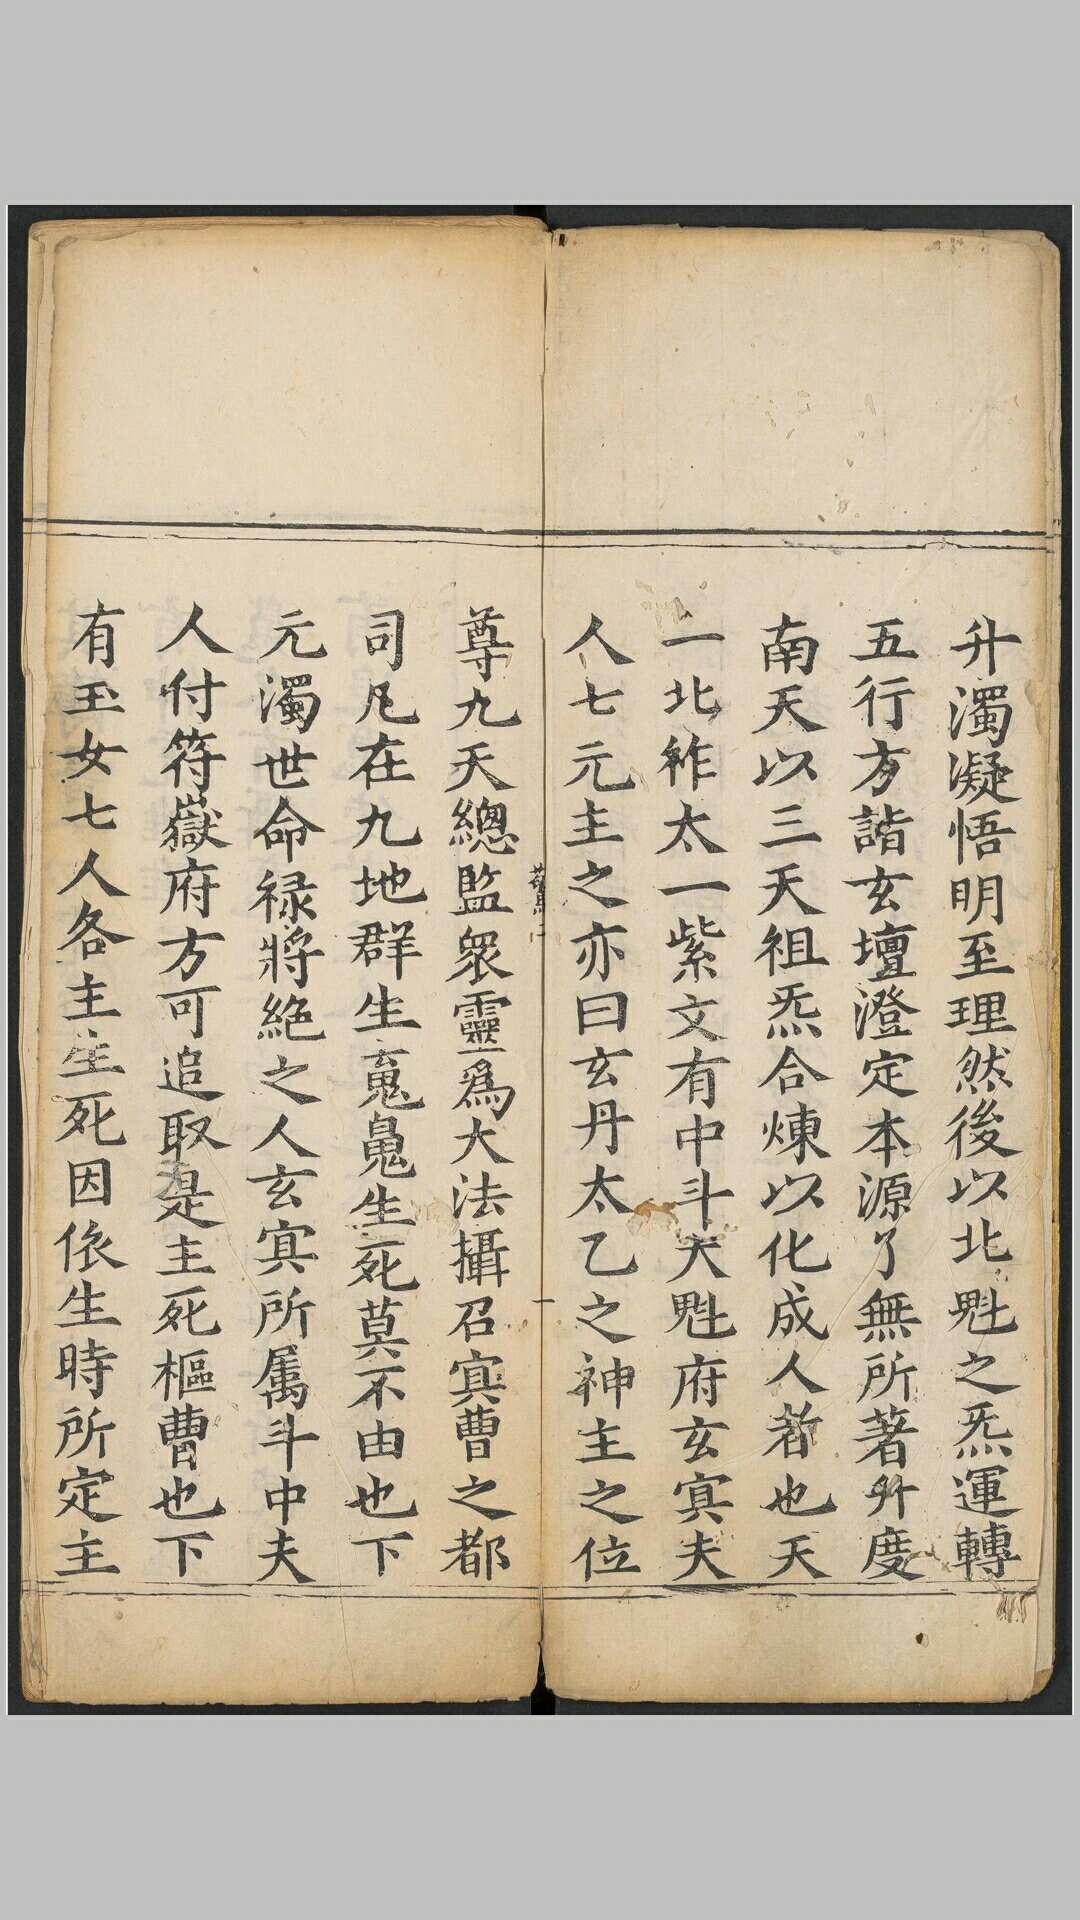 升濁凝悟明至理然後以北魁之炁運轉
五行方詣玄壇澄定本源了無所著升度
南天以三天祖炁合煉以化成人者也天
一北祚太一紫文有中斗大魁府玄㝠夫
人七元主之亦曰玄丹太乙之神主之位
尊九天總監衆靈爲大法攝召㝠曹之都
司凡在九地群生䰟鬼生死莫不由也下
元濁世命禄將絶之人玄㝠所属斗中夫
人付符嶽府方可追取是主死樞曹也下
有玉女七人各主生死因依生時所定主